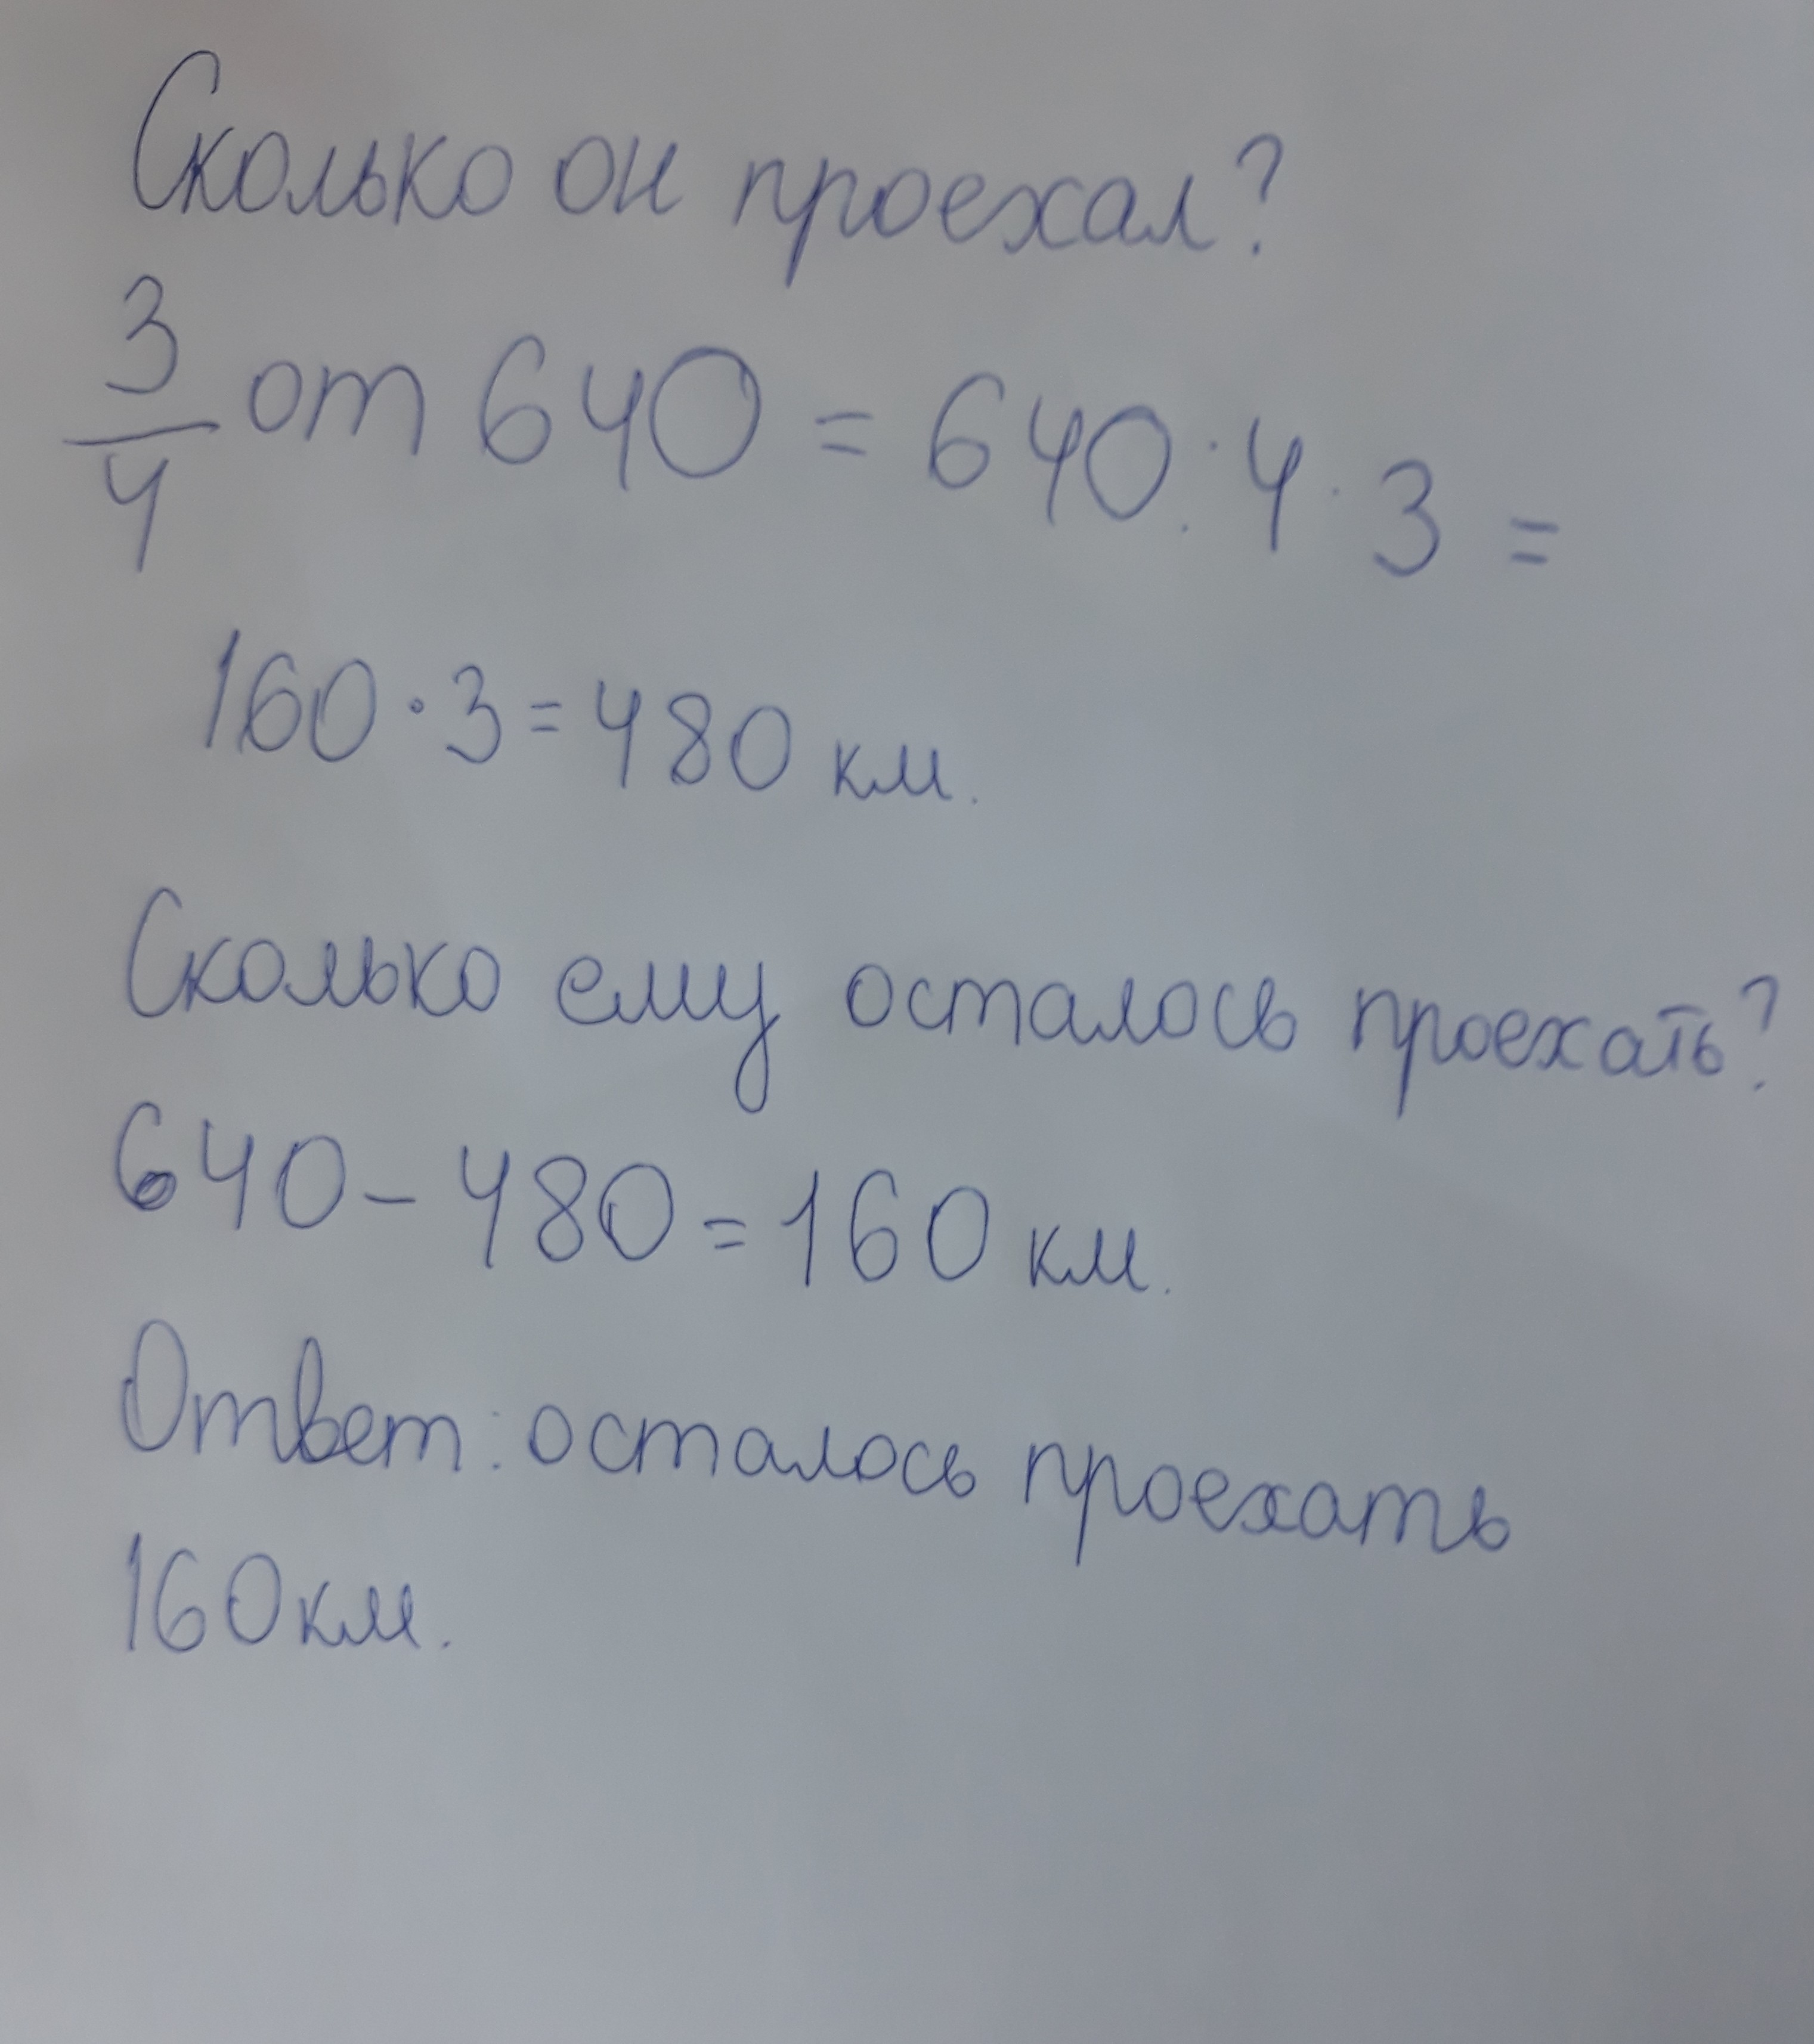 Сколько он проехал?
3/4 от 640 = 640 : 4 · 3 =
160 · 3 = 480 км.
Сколько ему осталось проехать?
640 - 480 = 160 км.
Ответ: осталось проехать
160 км.